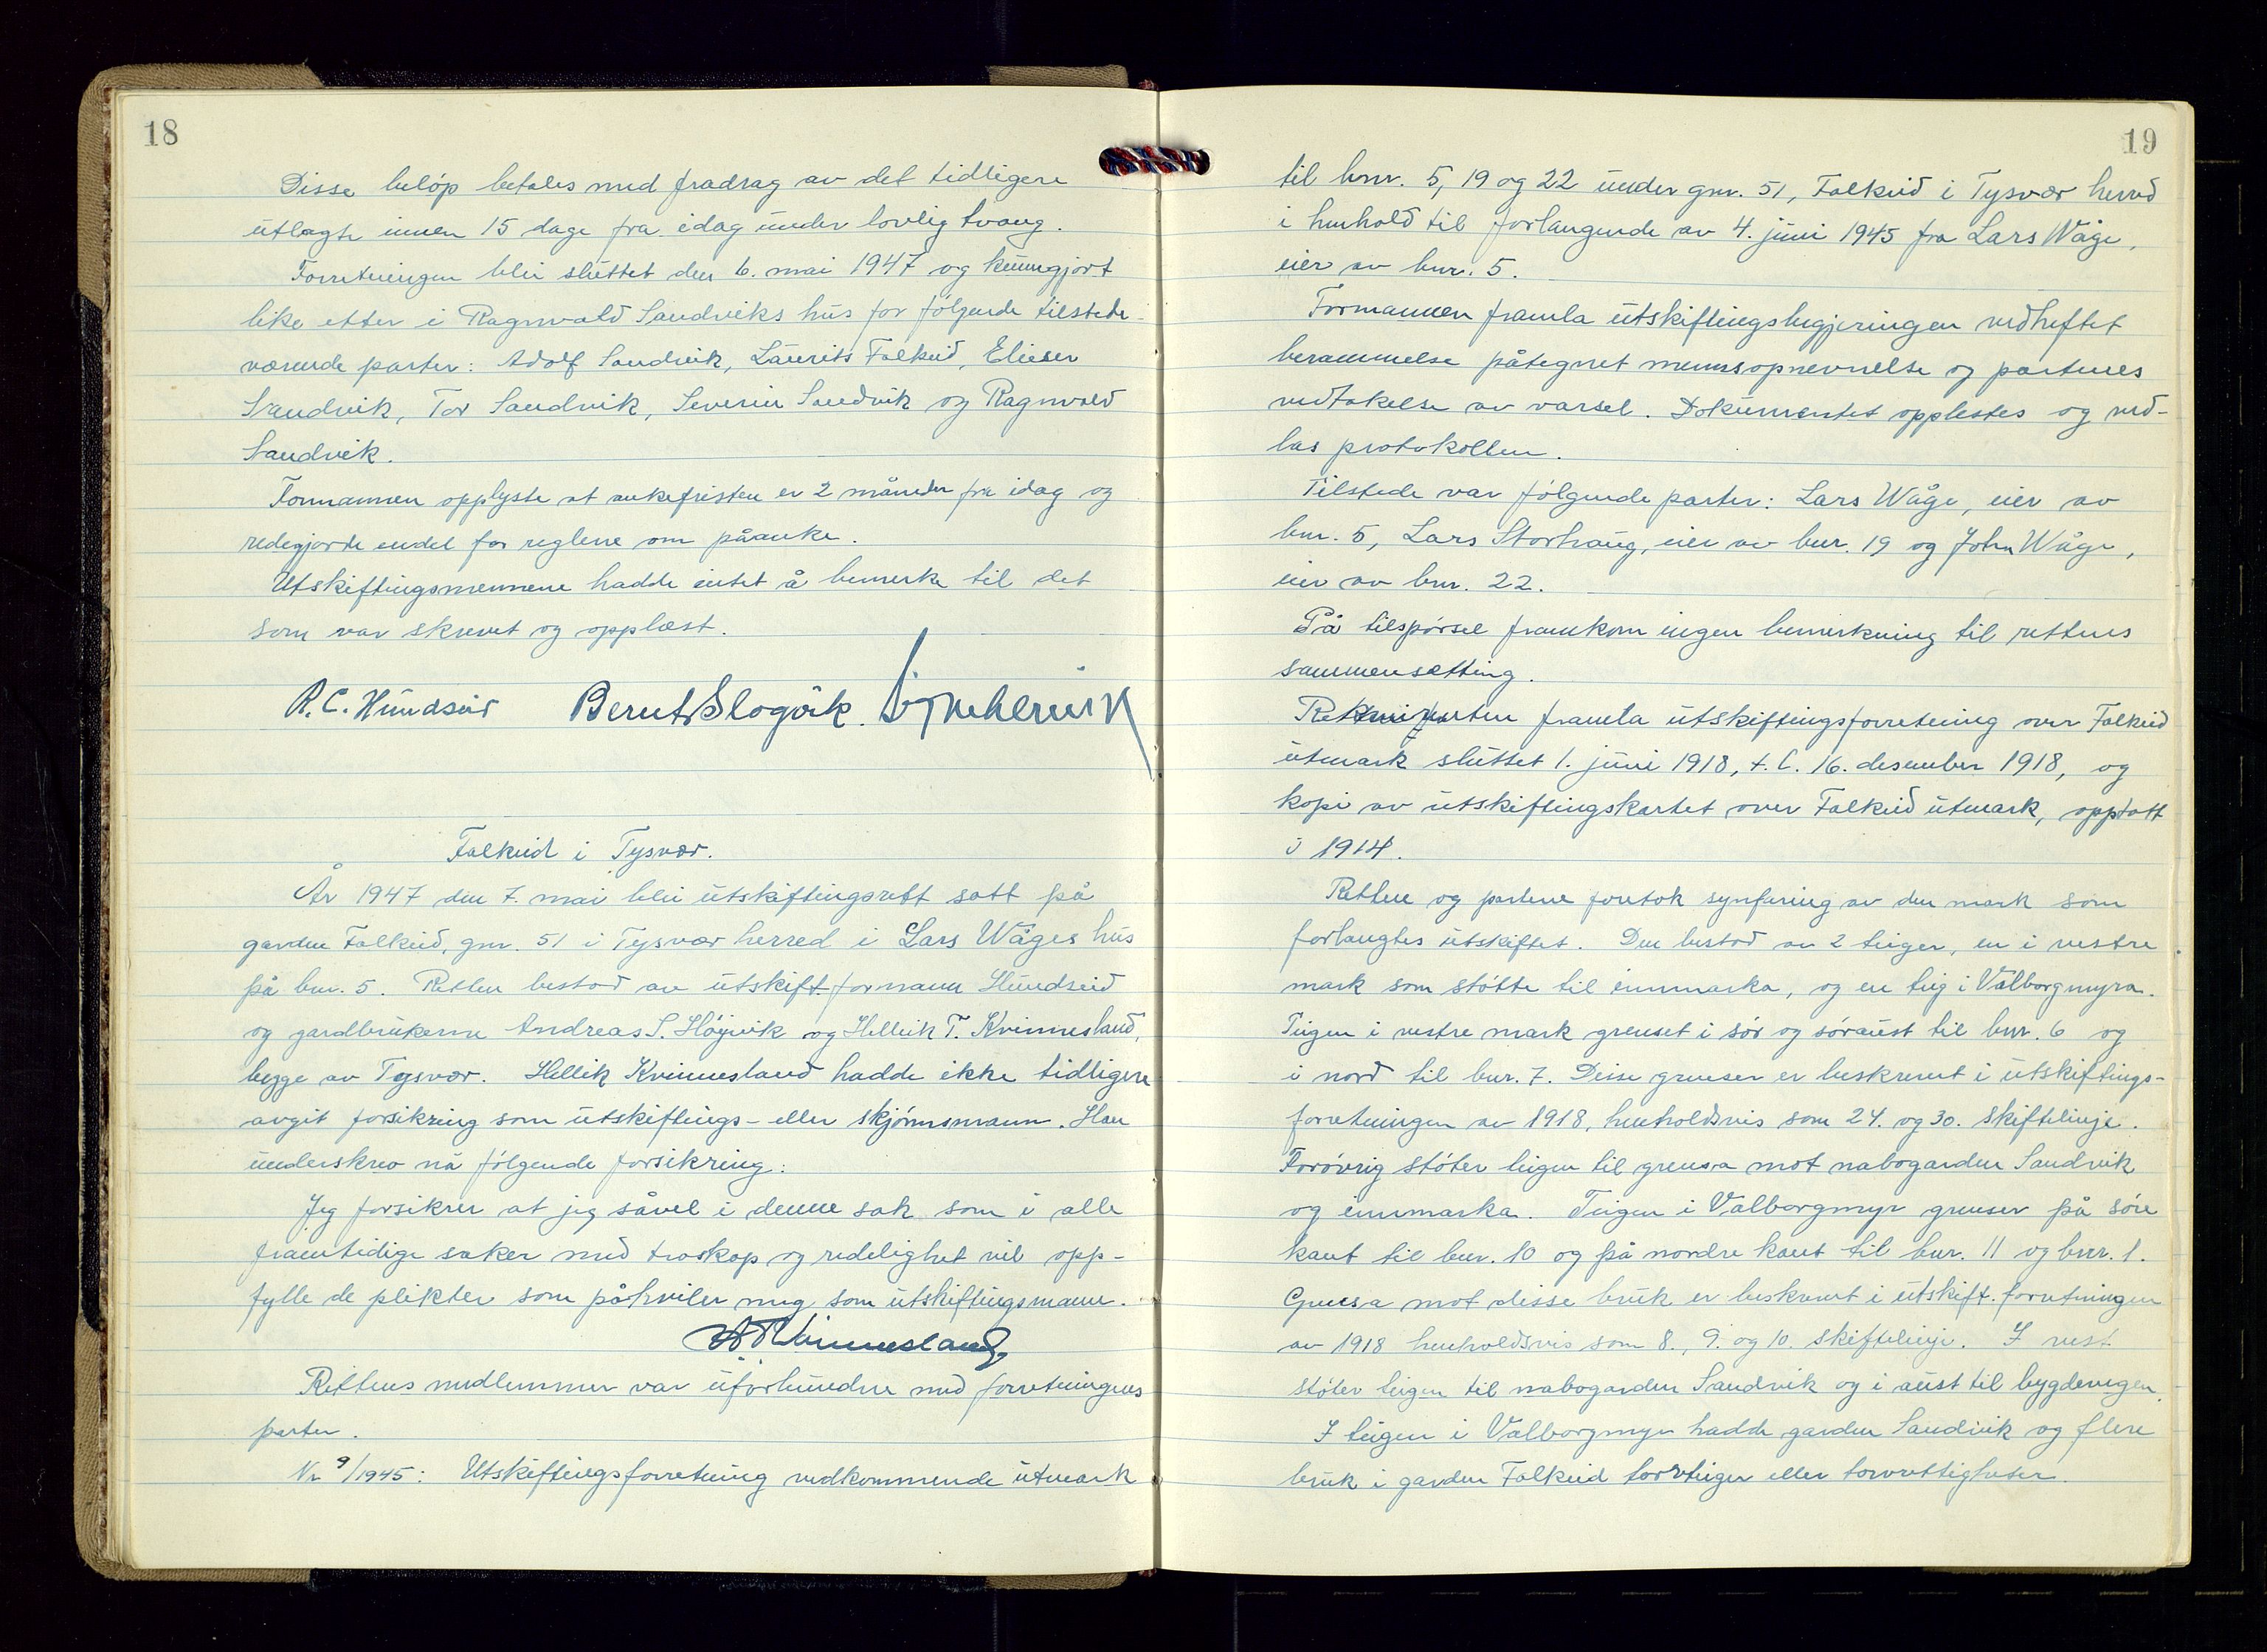 18
Disse beløp betales med fradrag av det tidligere
utlagte innen 15 dage fra idag under lovlig tvang.
Forretningen blei sluttet den 6. mai 1947 og kunngjort
like etter i Ragnvald Sandviks hus for følgende tilstede-
værende parter: Adolf Sandvik, Laurits Falkeid, Elieser
Sandvik, Tor Sandvik, Severin Sandvik og Ragnvald
Sandvik.
Formannen opplyste at ankefristen er 2 måneder fra idag og
redegjorde endel for reglene om påanke.
Utskiftingsmennene hadde intet å bemerke til det
som var skrevet og opplæst.
R. C. Hundseid Berent Slogvik.
Falkeid i Tysvær.
År 1947 den 7. mai blei utskiftingsrett satt på
garden Falkeid, gnr. 51 i Tysvær herred i Lars Wåges hus
på bnr. 5. Retten bestod av utskift.formann Hundseid
og gardbrukerne Andreas S. Høyvik og Hellik T. Kvinnesland,
begge av Tysvær. Hellik Kvinnesland hadde ikke tidligere
avgit forsikring som utskiftings- eller skjønnsmann. Han
underskrev nå følgende forsikring:
Jeg forsikrer at jeg såvel i denne sak som i alle
framtidige saker med troskap og redelighet vil opp-
fylle de plikter som påhviler meg som utskiftingsmann.
H T Kvinnesland
Rettens medlemmer var uforbundne med forretningens
parter.
Nr 9/1945: Utskiftingsforretning vedkommende utmark
19
til bnr. 5, 19 og 22 under gnr. 51, Falkeid i Tysvær herred
i henhold til forlangende av 4. juni 1945 fra Lars Wåge,
eier av bnr. 5.
Formannen framla utskiftingsbegjeringen vedheftet
berammelse påtegnet mennsopnevnelse og partenes
vedtakelse av varsel. Dokumentet opplestes og ved-
las protokollen.
Tilstede var følgende parter: Lars Wåge, eier av
bnr. 5, Lars Storhaug, eier av bnr. 19 og John Wåge,
eier av bnr. 22.
På tilspørsel framkom ingen bemerkning til rettens
sammensetting.
Rekvirenten framla utskiftingsforretning over Falkeid
utmark sluttet 1. juni 1918, t. l. 16. desember 1918, og
kopi av utskiftingskartet over Falkeid utmark, opptatt
i 1914.
Retten og partene foretok synfaring av den mark som
forlangtes utskiftet. Den bestod av 2 teiger, en i vestre
mark som støtte til innmarka, og en teig i Valborgmyra.
Teigen i vestre mark grenset i sør og søraust til bnr. 6 og
i nord til bnr. 7. Disse grenser er beskrevet i utskiftings-
forretningen av 1918, henholdsvis som 24. og 30. skiftelinje.
Forøvrig støter teigen til grensa mot nabogarden Sandvik
og innmarka. Teigen i Valborgmyr grenser på søre
kant til bnr. 10 og på nordre kant til bnr. 11 og bnr. 1.
Grensa mot disse bruk er beskrevet i utskift.forretningen
av 1918 henholdsvis som 8., 9. og 10. skiftelinje. I vest
støter teigen til nabogarden Sandvik og i aust til bygdevegen.
I teigen i Valborgmyr hadde garden Sandvik og flere
bruk i garden Falkeid torvteiger eller torvrettigheter.